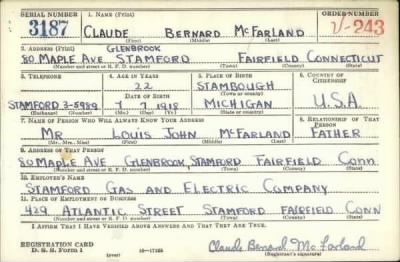 SERIAL NUMBER 1. NAME (Print) ORDER NUMBER
3187 CLAUDE BERNARD McFARLAND V-243
(First) (Middle) (Last)
2. ADDRESS (Print) GLENBROOK
80 MAPLE AVE STAMFORD FAIRFIELD CONNECTICUT
(Number and street or R. F. D. number) (Town) (County) (State)
3. TELEPHONE 4. AGE IN YEARS 5. PLACE OF BIRTH 6. COUNTRY OF CITIZENSHIP
22 STAMBOUGH
DATE OF BIRTH (Town or county)
STAMFORD 3-5989 7 7 1918 MICHIGAN U.S.A.
(Exchange) (Number) (Mo.) (Day) (Yr.) (State or country)
7. NAME OF PERSON WHO WILL ALWAYS KNOW YOUR ADDRESS 8. RELATIONSHIP OF THAT PERSON
MR LOUIS JOHN McFARLAND FATHER
(Mr., Mrs., Miss) (First) (Middle) (Last)
9. ADDRESS OF THAT PERSON
80 MAPLE AVE GLENBROOK, STAMFORD FAIRFIELD CONN
(Number and street or R. F. D. number) (Town) (County) (State)
10. EMPLOYER'S NAME
STAMFORD GAS AND ELECTRIC COMPANY
11. PLACE OF EMPLOYMENT OR BUSINESS
429 ATLANTIC STREET STAMFORD FAIRFIELD CONN
(Number and street or R. F. D. number) (Town) (County) (State)
I AFFIRM THAT I HAVE VERIFIED ABOVE ANSWERS AND THAT THEY ARE TRUE.
REGISTRATION CARD
D. S. S. Form 1 Claude Bernard McFarland
(over) (Registrant's signature)